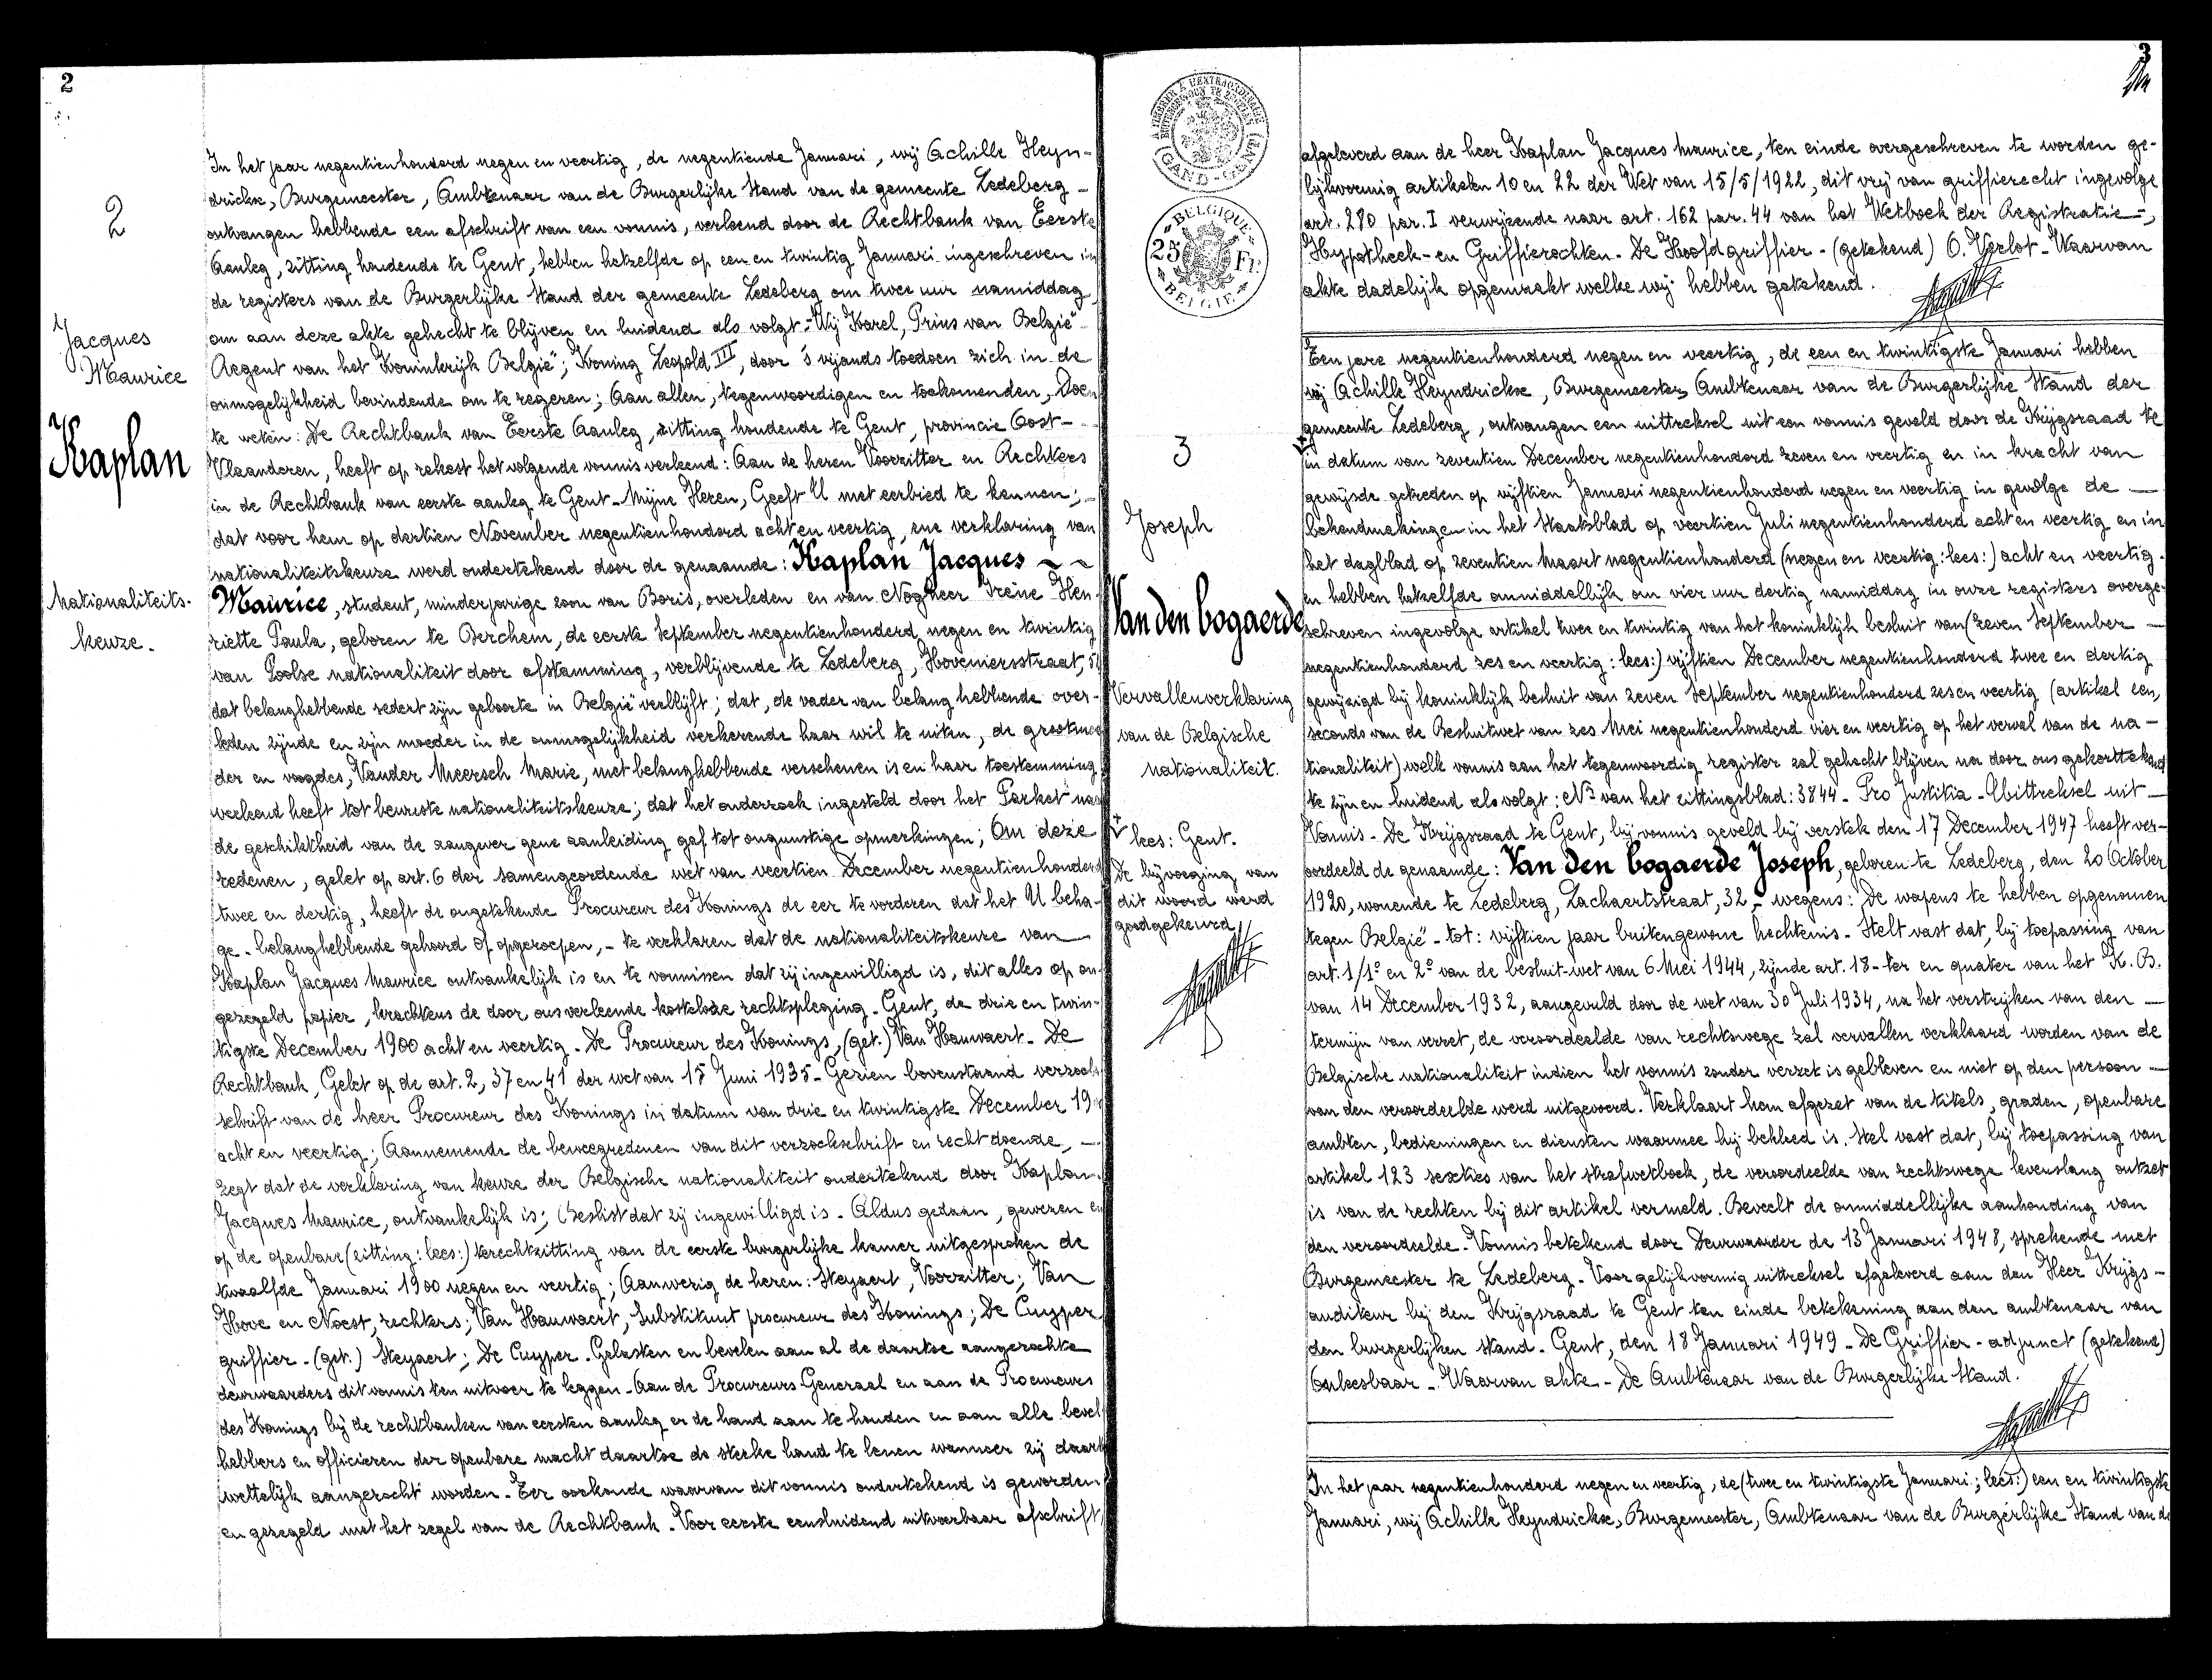 2
2
Jacques
Maurice
Kaplan
Nationaliteits-
keuze.
In het jaar negentienhonderd negen en veertig, de negentiende Januari, wij Achille Heyn-
drickx, Burgemeester, Ambtenaar van de Burgerlijke Stand van de gemeente Ledeberg -
ontvangen hebbende een afschrift van een vonnis, verleend door de Rechtbank van Eerste
Aanleg, zitting houdende te Gent, hebben hetzelfde op een en twintig Januari ingeschreven in
de registers van de Burgerlijke Stand der gemeente Ledeberg om twee uur namiddag
om aan deze akte gehecht te blijven en luidend als volgt - Wij Karel, Prins van België
Regent van het Koninkrijk België, Koning Leopold III, door 's vijands toedoen zich in de
onmogelijkheid bevindende om te regeren; Aan allen, tegenwoordigen en toekomenden, Doen
te weten: De Rechtbank van Eerste Aanleg, zitting houdende te Gent, provincie Oost-
Vlaanderen, heeft op rekest het volgende vonnis verleend: Aan de heren Voorzitter en Rechters
in de Rechtbank van eerste aanleg te Gent - Mijne Heren, Geeft U met eerbied te kennen;
dat voor hem op dertien November negentienhonderd acht en veertig, ene verklaring van
nationaliteitskeuze werd ondertekend door de genaamde: Kaplan Jacques ~ ~
Maurice, student, minderjarige zoon van Boris, overleden en van Nogheer Irène Hen-
riette Paula, geboren te Berchem, de eerste September negentienhonderd negen en twintig
van Poolse nationaliteit door afstamming, verblijvende te Ledeberg, Hoveniersstraat,
dat belanghebbende sedert zijn geboorte in België verblijft; dat, de vader van belanghebbende over-
leden zijnde en zijn moeder in de onmogelijkheid verkerende haar wil te uiten, de grootmoe
der en voogdes, Vander Meersch Marie, met belanghebbende verschenen is en haar toestemming
verleend heeft tot bewuste nationaliteitskeuze; dat het onderzoek ingesteld door het Parket naar
de geschiktheid van de aangever gene aanleiding gaf tot ongunstige opmerkingen; Om deze
redenen, gelet op art. 6 der samengeordende wet van veertien December negentienhonderd
twee en dertig, heeft de ongetekende Procureur des Konings de eer te vorderen dat het U beha-
ge - belanghebbende gehoord of opgeroepen, - te verklaren dat de nationaliteitskeuze van
Kaplan Jacques Maurice ontvankelijk is en te vonnissen dat zij ingewilligd is, dit alles op on-
gezegeld papier, krachtens de door ons verleende kosteloze rechtspleging - Gent, de drie en twin-
tigste December 1900 acht en veertig - De Procureur des Konings, (get.) Van Hauwaert - De
Rechtbank, Gelet op de art. 2, 37 en 41 der wet van 15 Juni 1935 - Gezien bovenstaand verzoek
schrift van de heer Procureur des Konings in datum van drie en twintigste December 19
acht en veertig; Aannemende de beweegredenen van dit verzoekschrift en recht doende, -
zegt dat de verklaring van keuze der Belgische nationaliteit ondertekend door Kaplan
Jacques Maurice, ontvankelijk is; Beslist dat zij ingewilligd is - Aldus gedaan, gewezen en
op de openbare (zitting: lees:) terechtzitting van de eerste burgerlijke kamer uitgesproken de
twaalfde Januari 1900 negen en veertig; Aanwezig de heren: Steyaert, Voorzitter; Van
Hove en Noest, rechters; Van Hauwaert, Substituut procureur des Konings; De Cuyper
griffier - (get.) Steyaert; De Cuyper - Gelasten en bevelen aan al de daartoe aangezochte
deurwaarders dit vonnis ten uitvoer te leggen - Aan de Procureurs Generaal en aan de Procureurs
des Konings bij de rechtbanken van eersten aanleg er de hand aan te houden en aan alle bevel
hebbers en officieren der openbare macht daartoe de sterke hand te lenen wanneer zij daart
wettelijk aangezocht worden - Ter oorkonde waarvan dit vonnis ondertekend is geworden
en gezegeld met het zegel van de Rechtbank - Voor eerste eensluidend uitvoerbaar afschrift
3
GAND - GENT
BELGIQUE
25 Fr
BELGIE
afgeleverd aan de heer Kaplan Jacques Maurice, ten einde overgeschreven te worden ge-
lijkvormig artikelen 10 en 22 der Wet van 15/5/1922, dit vrij van griffierecht ingevolge
art. 280 par. I verwijzende naar art. 162 par. 44 van het Wetboek der Registratie-,
Hypotheek- en Griffierechten - De Hoofdgriffier - (getekend) O. Verlot - Waarvan
akte dadelijk opgemaakt welke wij hebben getekend.
3
Joseph
Van den bogaerde
Vervallenverklaring
van de Belgische
nationaliteit.
lees: Gent.
De bijvoeging van
dit woord werd
goedgekeurd
Ten jare negentienhonderd negen en veertig, de een en twintigste Januari hebben
wij Achille Heyndrickx, Burgemeester, Ambtenaar van de Burgerlijke Stand der
gemeente Ledeberg, ontvangen een uittreksel uit een vonnis geveld door de Krijgsraad te
in datum van zeventien December negentienhonderd zeven en veertig en in kracht van
gewijsde getreden op vijftien Januari negentienhonderd negen en veertig in gevolge de -
Bekendmakingen in het Staatsblad op veertien Juli negentienhonderd acht en veertig en in
het dagblad op zeventien Maart negentienhonderd (negen en veertig: lees:) acht en veertig.
en hebben hetzelfde onmiddellijk om vier uur dertig namiddag in onze registers overge-
schreven ingevolge artikel twee en twintig van het koninklijk besluit van (zeven September -
negentienhonderd zes en veertig: lees:) vijftien December negentienhonderd twee en dertig
gewijzigd bij koninklijk besluit van zeven September negentienhonderd zes en veertig (artikel een,
secondo van de Besluitwet van zes Mei negentienhonderd vier en veertig op het verval van de na-
tionaliteit) welk vonnis aan het tegenwoordig register zal gehecht blijven na door ons gekorttekend
te zijn en luidend als volgt: Nr van het zittingsblad: 3844 - Pro Justitia - Uittreksel uit -
Vonnis - De Krijgsraad te Gent, bij vonnis geveld bij verstek den 17 December 1947 heeft ver-
oordeeld de genaamde: Van den bogaerde Joseph, geboren te Ledeberg, den 20 October
1920, wonende te Ledeberg, Zachaertstraat, 32, - wegens: De wapens te hebben opgenomen
tegen België - tot: vijftien jaar buitengewone hechtenis - Stelt vast dat, bij toepassing van
art. 1/1° en 2° van de besluit-wet van 6 Mei 1944, zijnde art. 18-ter en quater van het K.B.
van 14 December 1932, aangevuld door de wet van 30 Juli 1934, na het verstrijken van den -
termijn van verzet, de veroordeelde van rechtswege zal vervallen verklaard worden van de
Belgische nationaliteit indien het vonnis zonder verzet is gebleven en niet op den persoon -
van den veroordeelde werd uitgevoerd. Verklaart hem afgezet van de titels, graden, openbare
ambten, bedieningen en diensten waarmee hij bekleed is. Stel vast dat, bij toepassing van
artikel 123 sexties van het strafwetboek, de veroordeelde van rechtswege levenslang ontzet
is van de rechten bij dit artikel vermeld. Beveelt de onmiddellijke aanhouding van
den veroordeelde - Vonnis betekend door Deurwaarder de 13 Januari 1948, sprekende met
Burgemeester te Ledeberg - Voor gelijkvormig uittreksel afgeleverd aan den Heer Krijgs-
auditeur bij den Krijgsraad te Gent ten einde betekening aan den ambtenaar van
den burgerlijken stand - Gent, den 18 Januari 1949 - De Griffier - adjunct (getekend)
Onleesbaar - Waarvan akte - De Ambtenaar van de Burgerlijke Stand.
In het jaar negentienhonderd negen en veertig, de (twee en twintigste Januari; lees:) een en twintigste
Januari, wij Achille Heyndrickx, Burgemeester, Ambtenaar van de Burgerlijke Stand van de